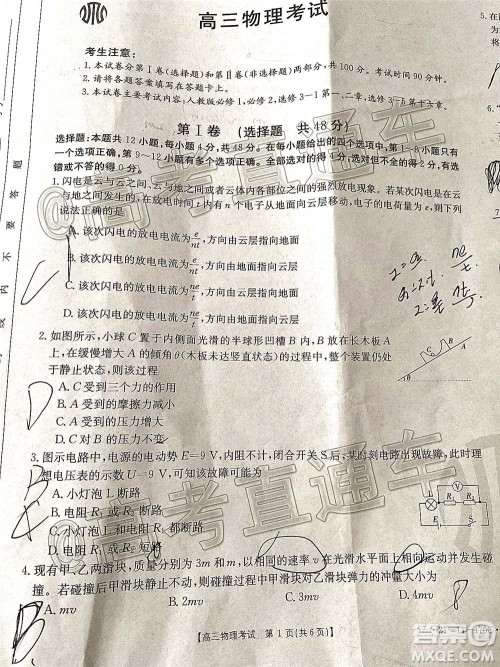 高三物理考试
考生注意:
1.本试卷分第Ⅰ卷(选择题)和第Ⅱ卷(非选择题)两部分,共100分。考试时间90分钟。
2.请将各题答案填写在答题卡上。
3.本试卷主要考试内容:人教版必修1,必修2,选修3-1第一、二章,选修3-5第十六章。
第Ⅰ卷 (选择题 共48分)
选择题:本题共12小题,每小题4分,共48分。在每小题给出的四个选项中,第1~8小题只
有一个选项正确,第9~12小题有多个选项正确。全部选对的得4分,选对但不全的得2分,
有选错或不答的得0分。
1.闪电是云与云之间、云与地之间或者云体内各部位之间的强烈放电现象。若某次闪电是云
与地之间发生的,在时间t内有n个电子从云层流向地面,电子的电荷量为e,则下列说法正确的是
A.该次闪电的放电电流为e/nt,方向由云层指向地面
B.该次闪电的放电电流为e/nt,方向由地面指向云层
C.该次闪电的放电电流为 ,方向由地面指向云层
D.该次闪电的放电电流为 ,方向由云层指向地面
2.如图所示,小球C置于内侧面光滑的半球形凹槽B内,B放在长木板A
上,在缓慢增大A的倾角θ(木板未达竖直状态)的过程中,整个装置仍处
于静止状态,则该过程中
A.C受到三个力的作用
B.A受到的摩擦力不变
C.A受到的压力增大
D.C对B的压力不变
3.图示电路中,电源的电动势E=9 V,内阻不计,闭合开关S后,某时刻电路出现故障,此时理
想电压表的示数U=9 V,可知该故障可能为
A.小灯泡L断路
B.电阻R 断路
C.小灯泡L和电阻R 都断路
D.电阻R 断路
4.现有甲、乙两滑块,质量分别为3m和m,以相同的速率v在光滑水平面上相向运动,发生碰
撞。若碰撞后甲滑块静止不动,则碰撞过程中甲滑块对乙滑块弹力的冲量大小为
A.mv B.2mv C.3mv D.4mv
【高三物理考试 第1页(共6页)】
@高考直通车